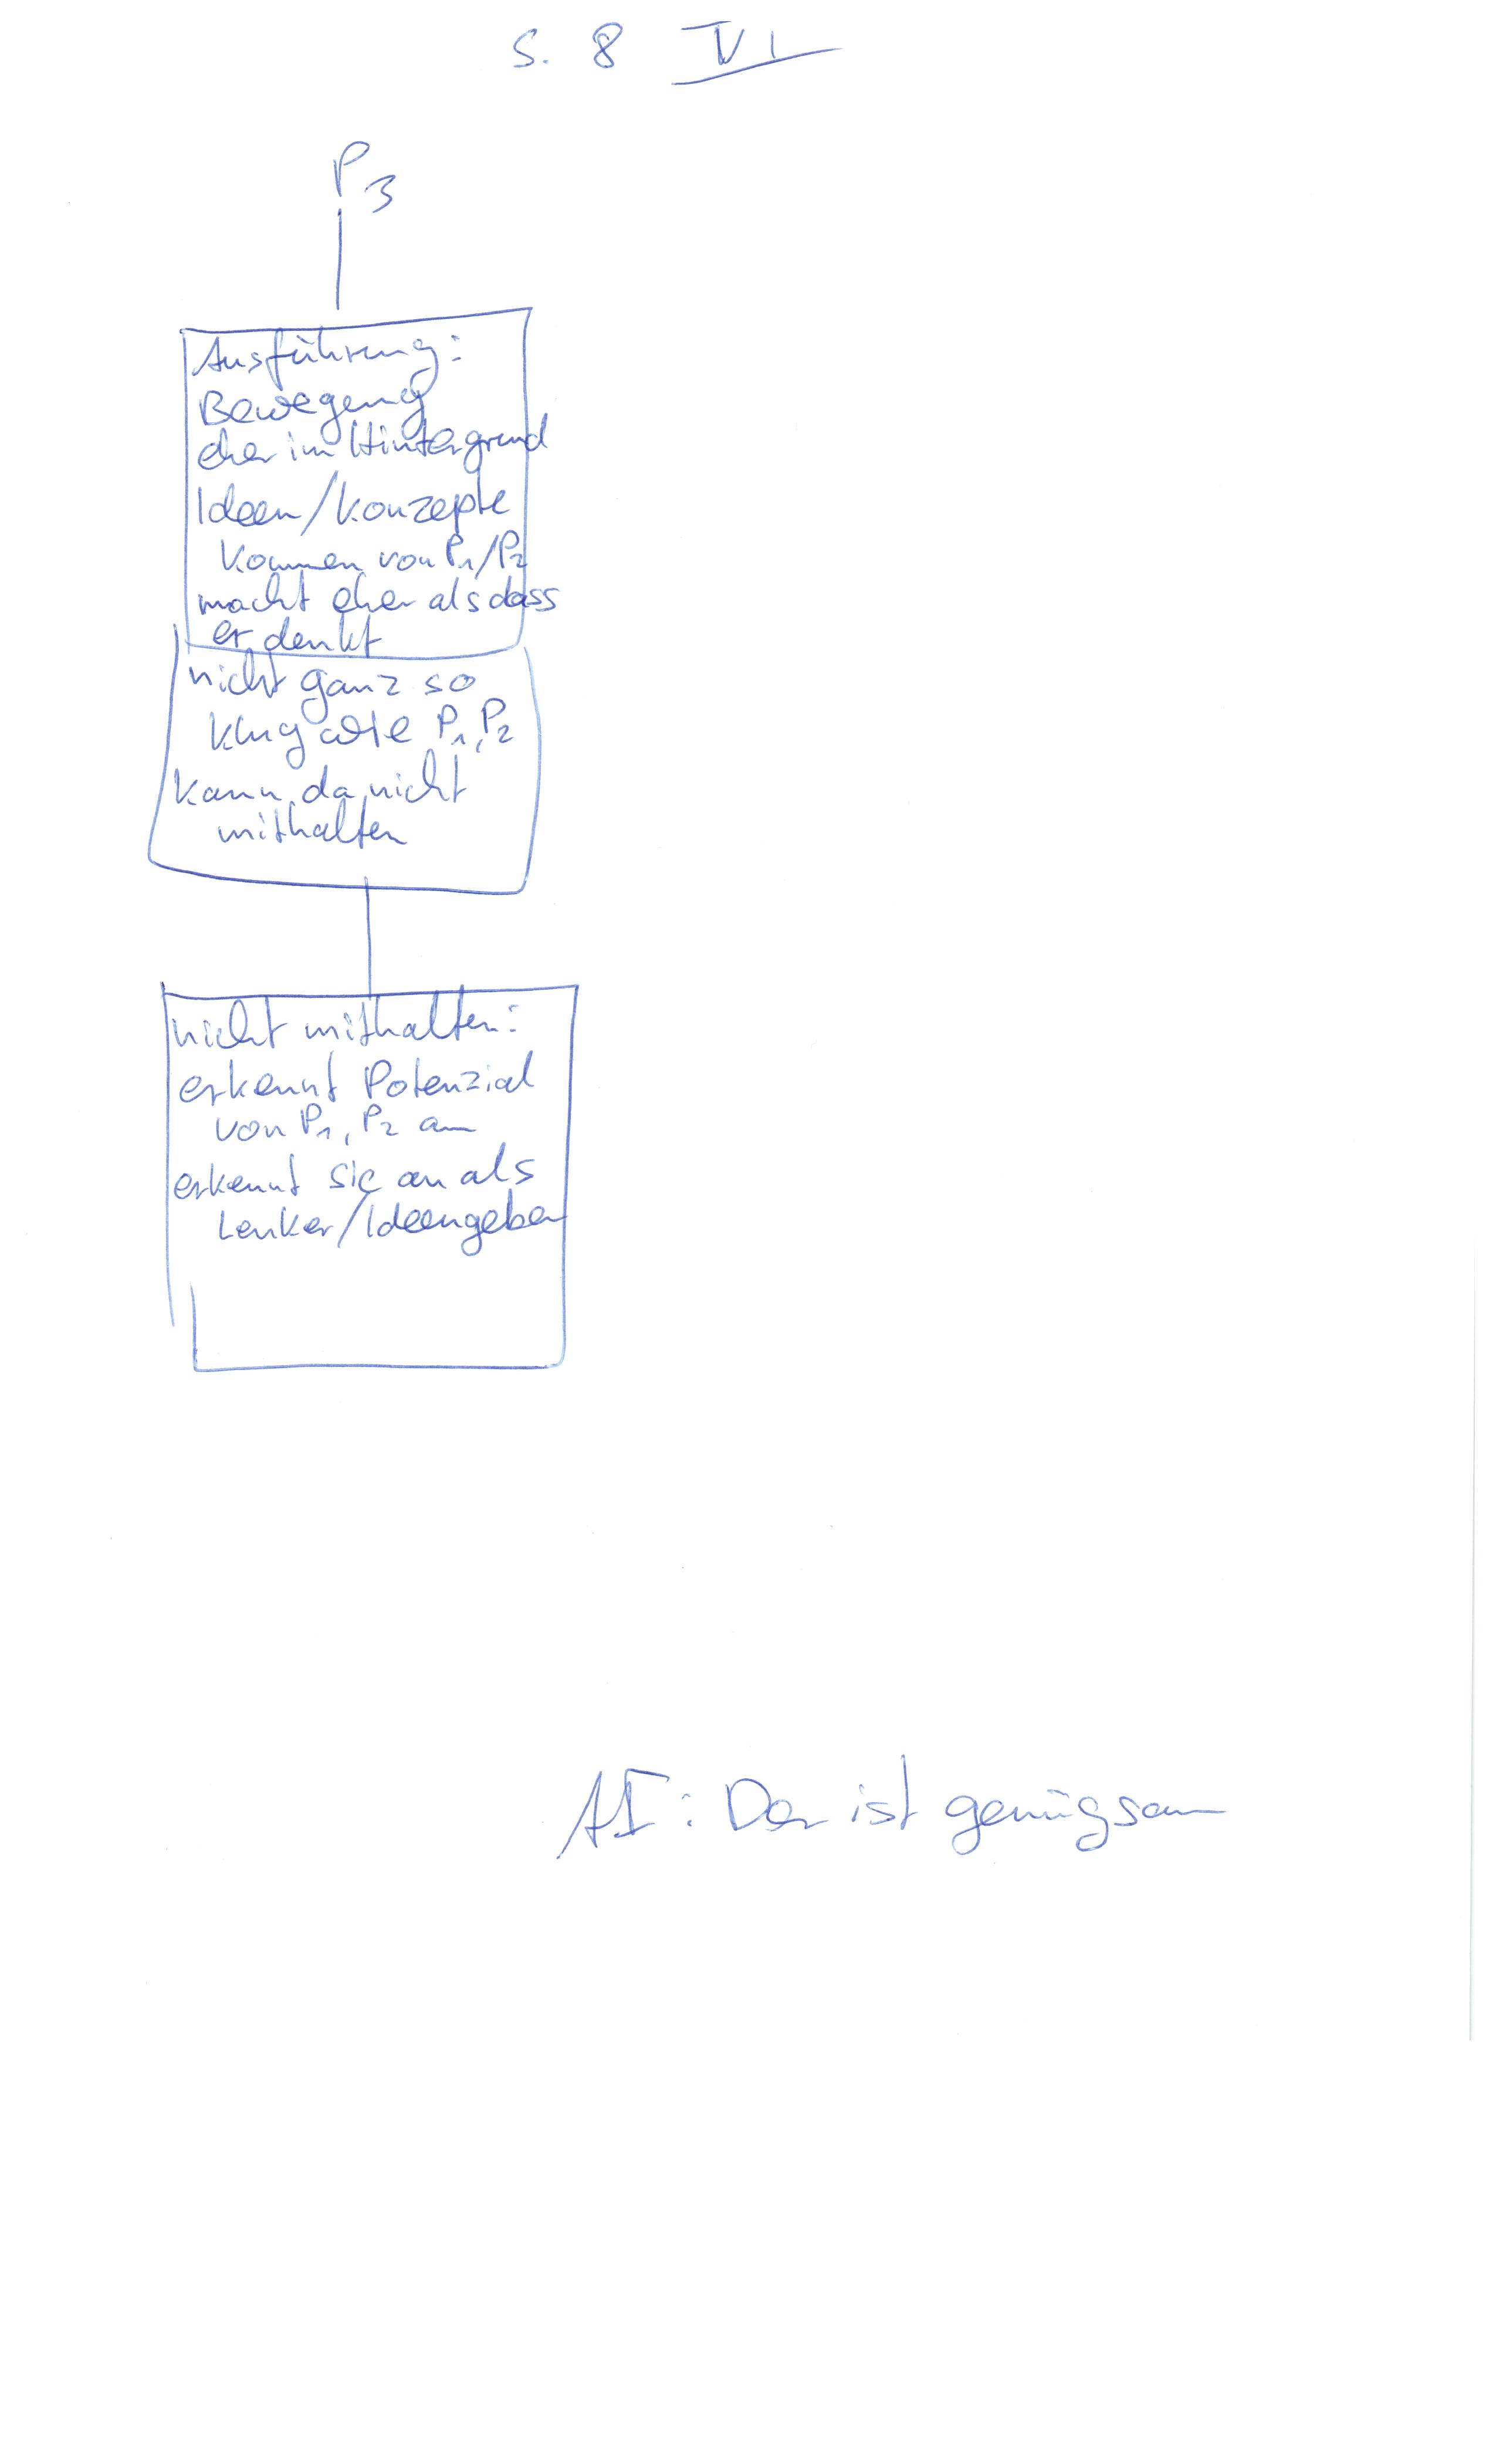 S. 8 VI
P3
Ausführung:
Bewegung
eher im Hintergrund
Ideen/Konzepte
kommen von P1/P2
macht eher als dass
er denkt
nicht ganz so
klug wie P1, P2
kann da nicht
mithalten
nicht mithalten:
erkennt Potenzial
von P1, P2 an
erkennt sie an als
Lenker/Ideengeber
: Der ist genügsam